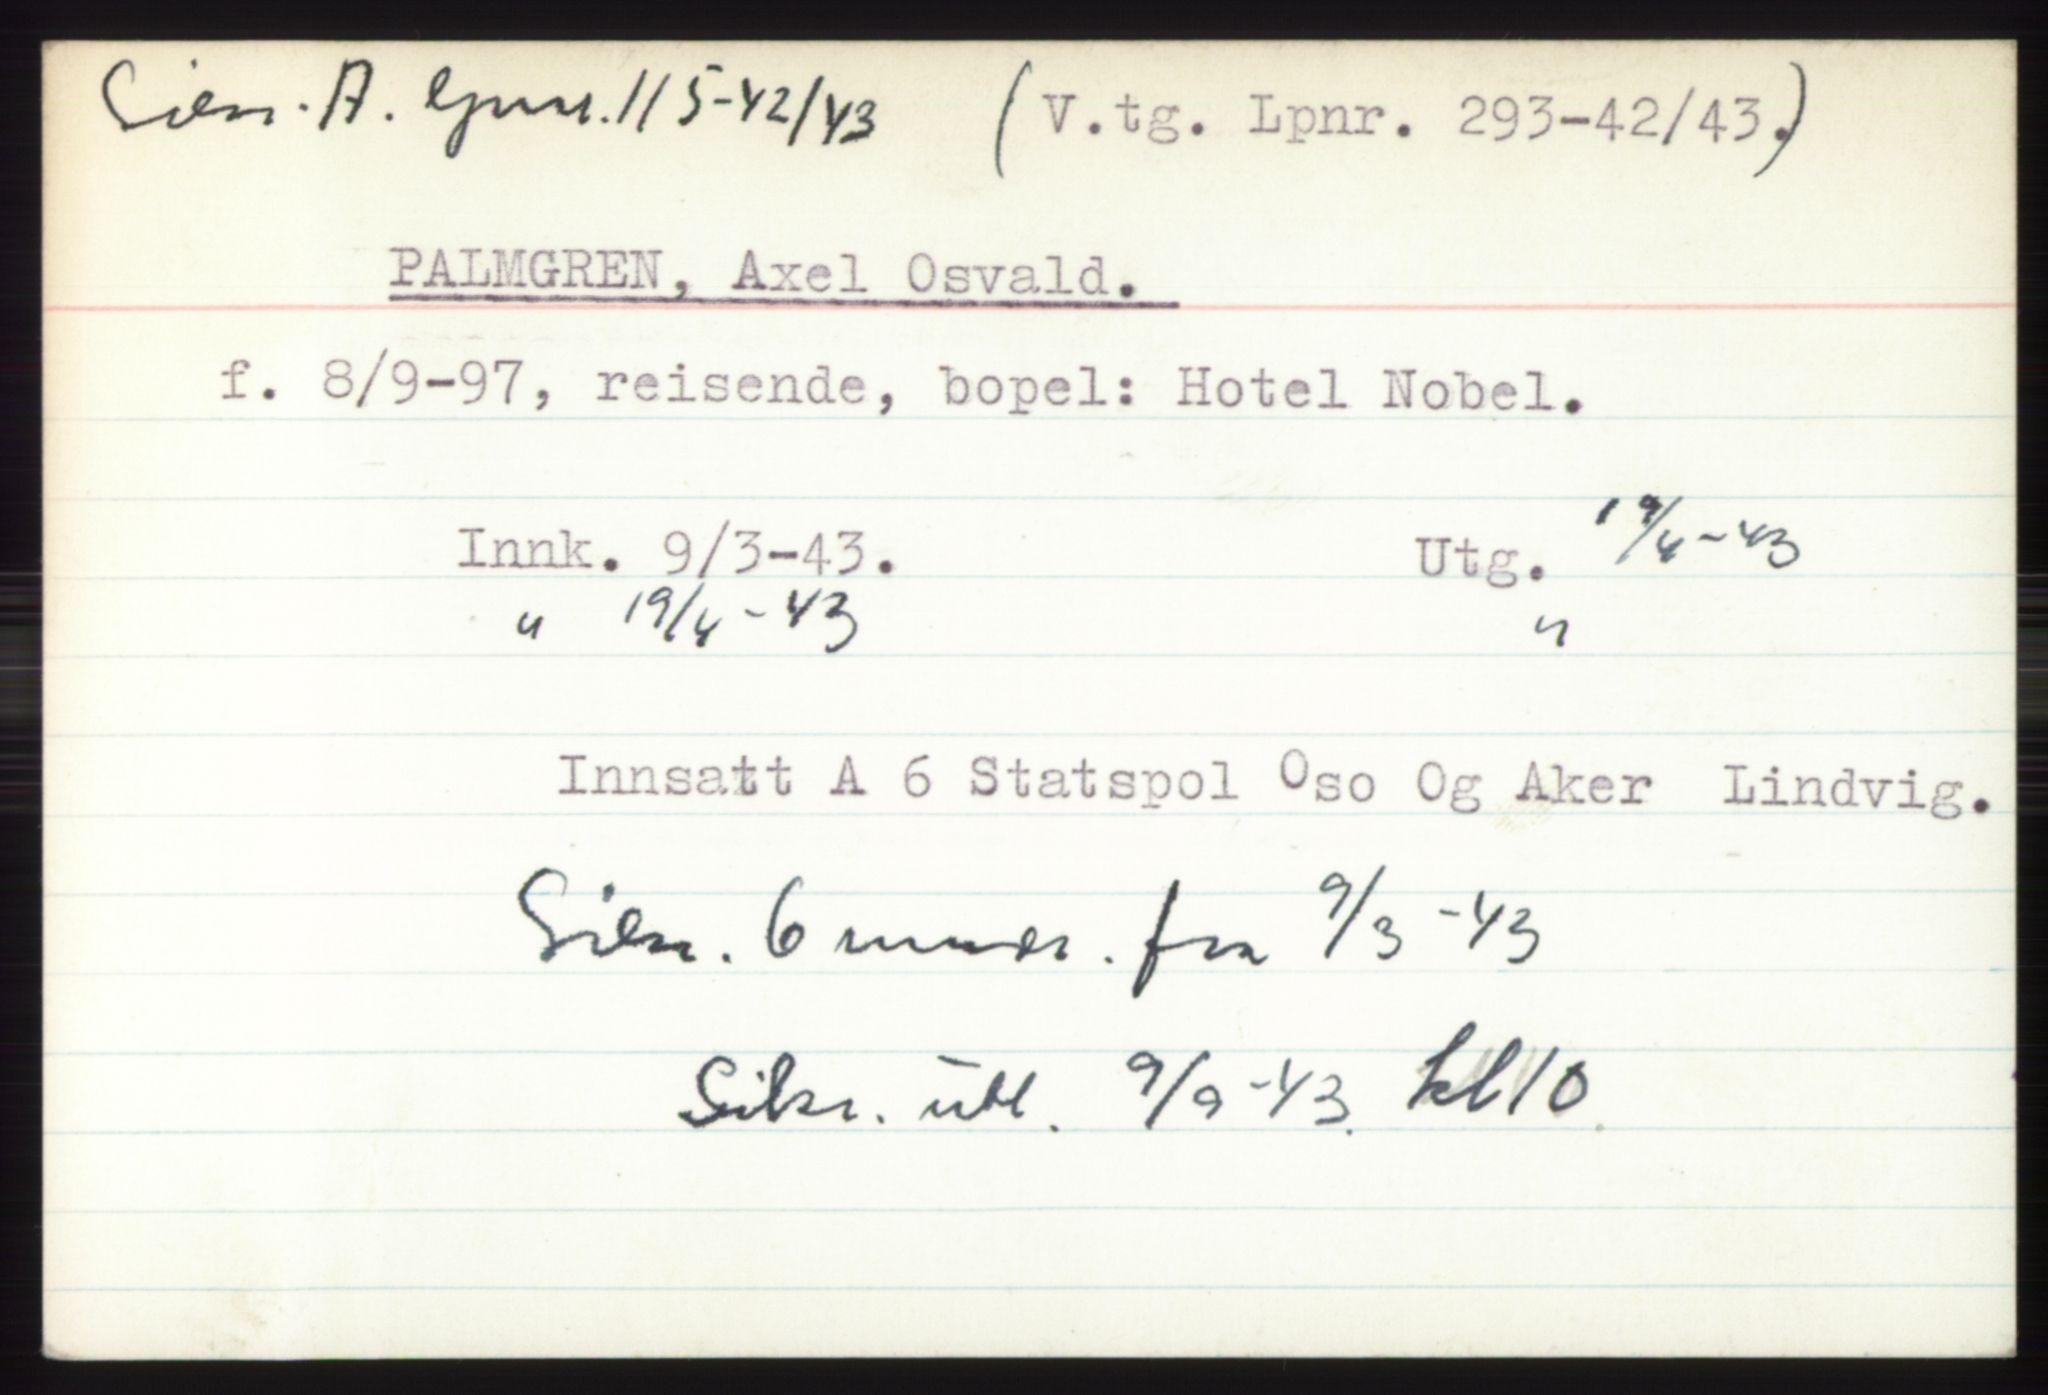 Sikr. A. lpnr. 115-42/43 (V.tg. Lpnr. 293-42/43.)
PALMGREN, Axel Osvald.
f. 8/9-97, reisende, bopel: Hotel Nobel.
Innk. 9/3-43. Utg. 19/4-43
" 19/4-43 "
Innsatt A 6 Statspol Oso Og Aker Lindvig.
Sikr. 6 mndr. fra 9/3-43
Sikr. utl. 9/9-43. kl 10